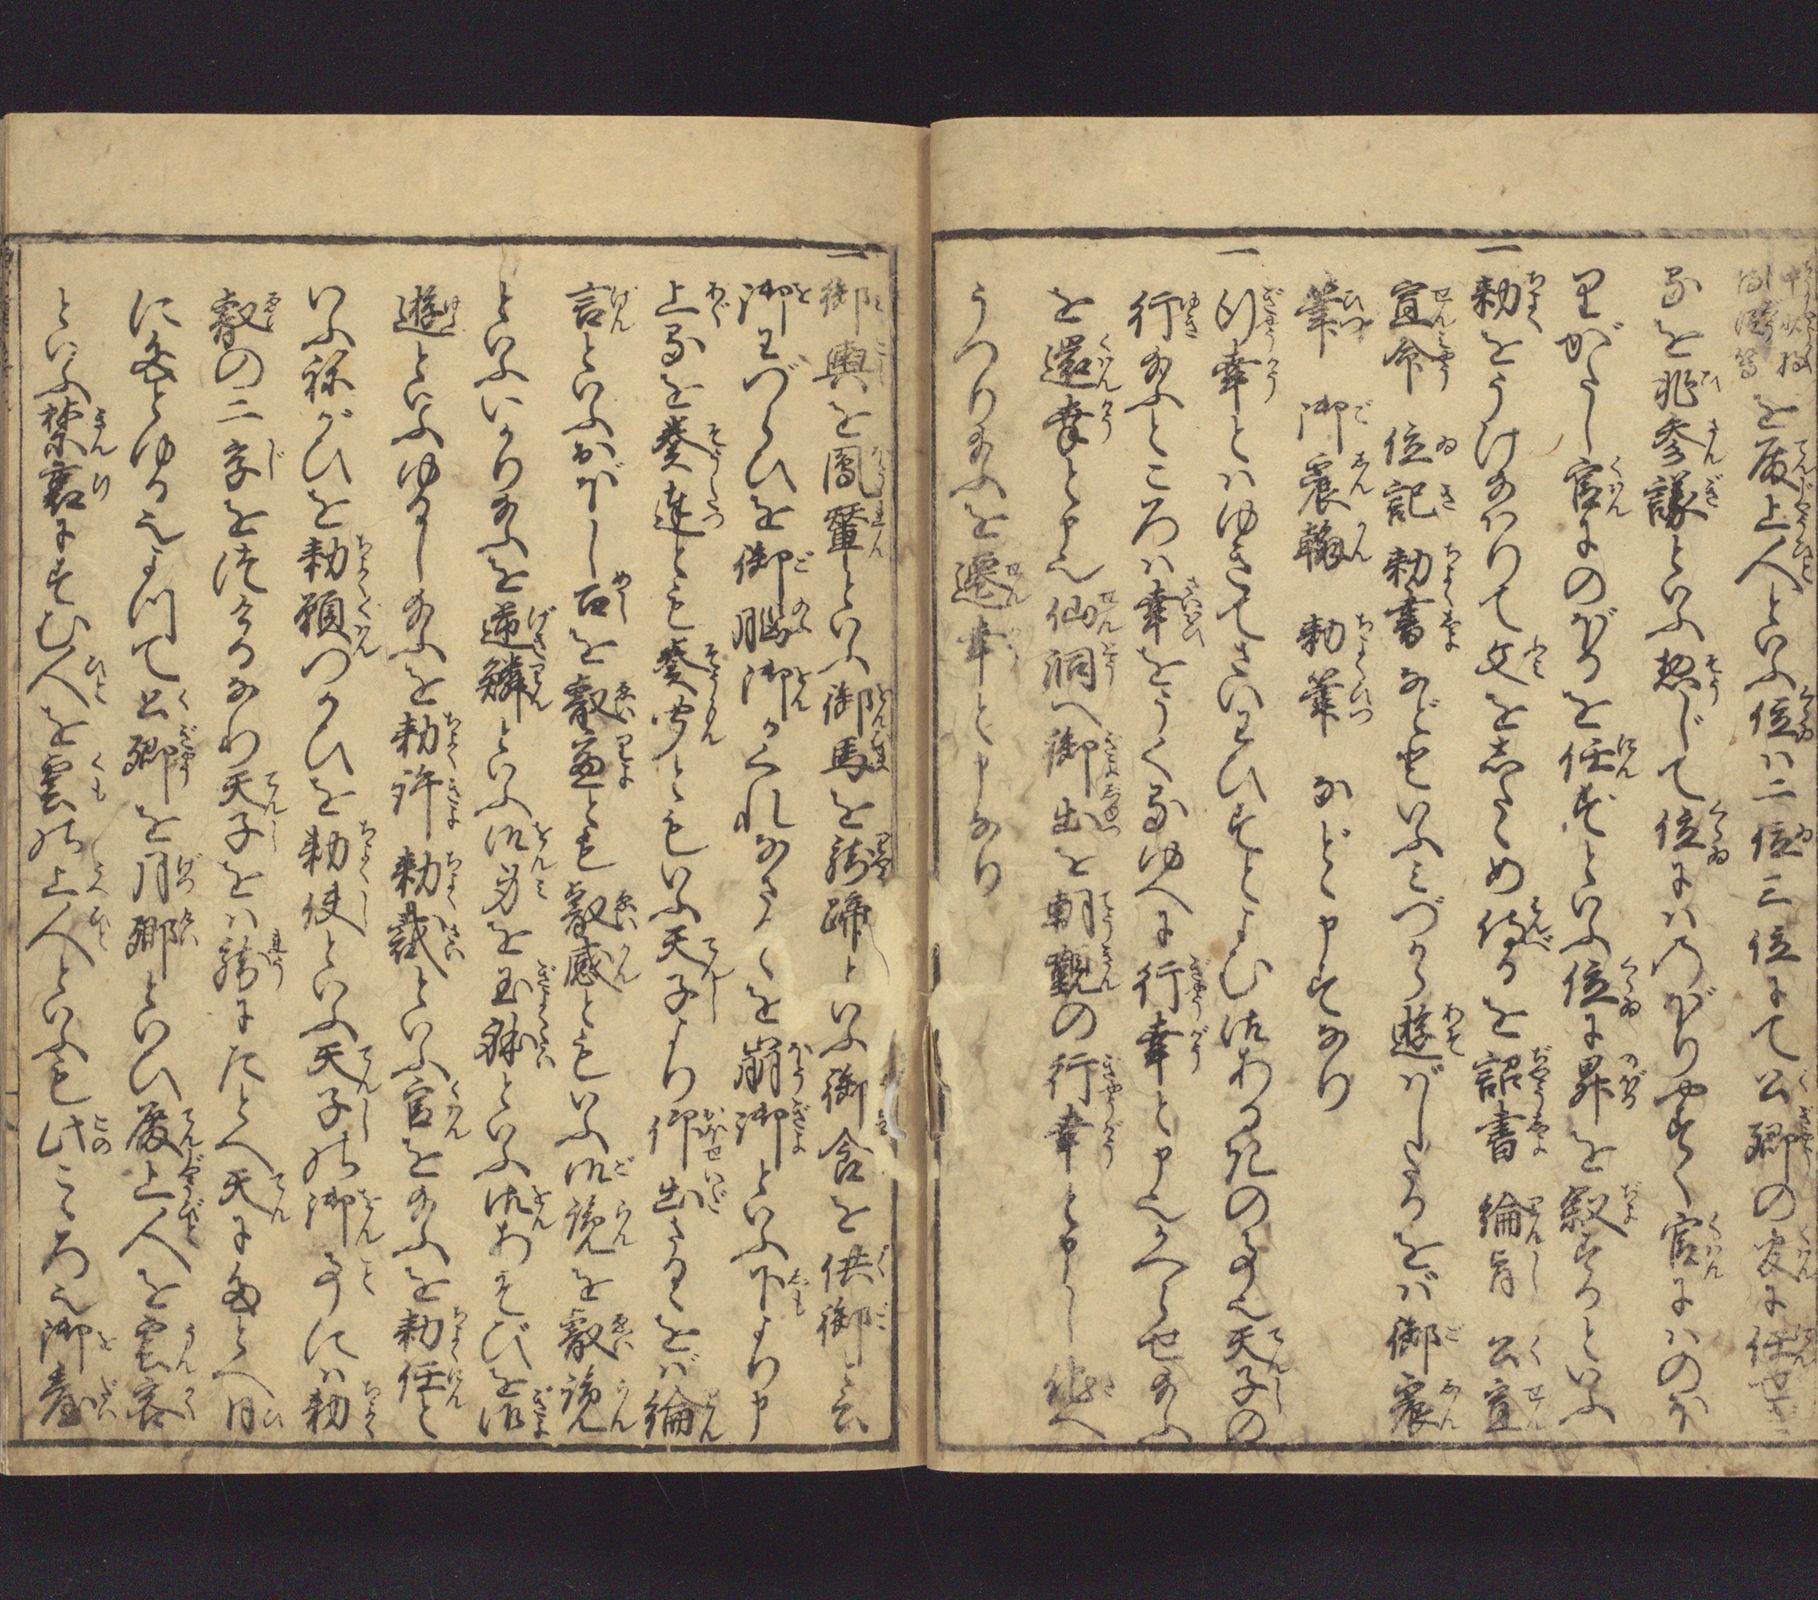 を殿上人といふ位ハ二位三位にて公卿の官に任せざ
るを非参議といふ惣じて位にハのぼりやすく官にハのぼ
りがたし官にのぼるを任ずといふ位に昇を叙するといふ
一勅をうけ給ハりて文をしたゝめ侍るを詔書 綸旨 公宣
宣命 位記 勅書などゝいふみづから遊ばしたるをバ御震
筆 御震翰 勅筆 などゝ申すなり
一行幸とハゆきてさいわひすとよむ御ある記の事也天子の
行給ふところハ幸をうくる事ゆへに行幸と申也かへらせ給ふ
を還幸と申也仙洞へ御出を朝覲の行幸と申し他へ
うつり給ふを遷幸と申なり
一御輿を鳳輦といふ御馬を龍蹄といふ御食を供御と云
御わづらひを御脳御かくれなさるゝを崩御といふ下より申
上る事を奏達とも奏聞ともいふ天子より仰出さるゝをバ綸
言といふおぼしめしを叡慮とも叡感ともいふ御読を叡読
といふいかり給ふを逆鱗といふ御身を玉躰といふ御あそびを御
遊といふゆるし給ふを勅許 勅裁といふ官を給ふを勅任と
いふねがひを勅願つかひを勅使といふ天子の御事にハ勅
叡の二字をつけるなり天子をハ龍にたとへ天にたとへ日
にたとゆる也よつて公卿を月卿といひ殿上人を雲客
といふ禁裏にすむ人を雲の上人といふも此こゝろ也御台